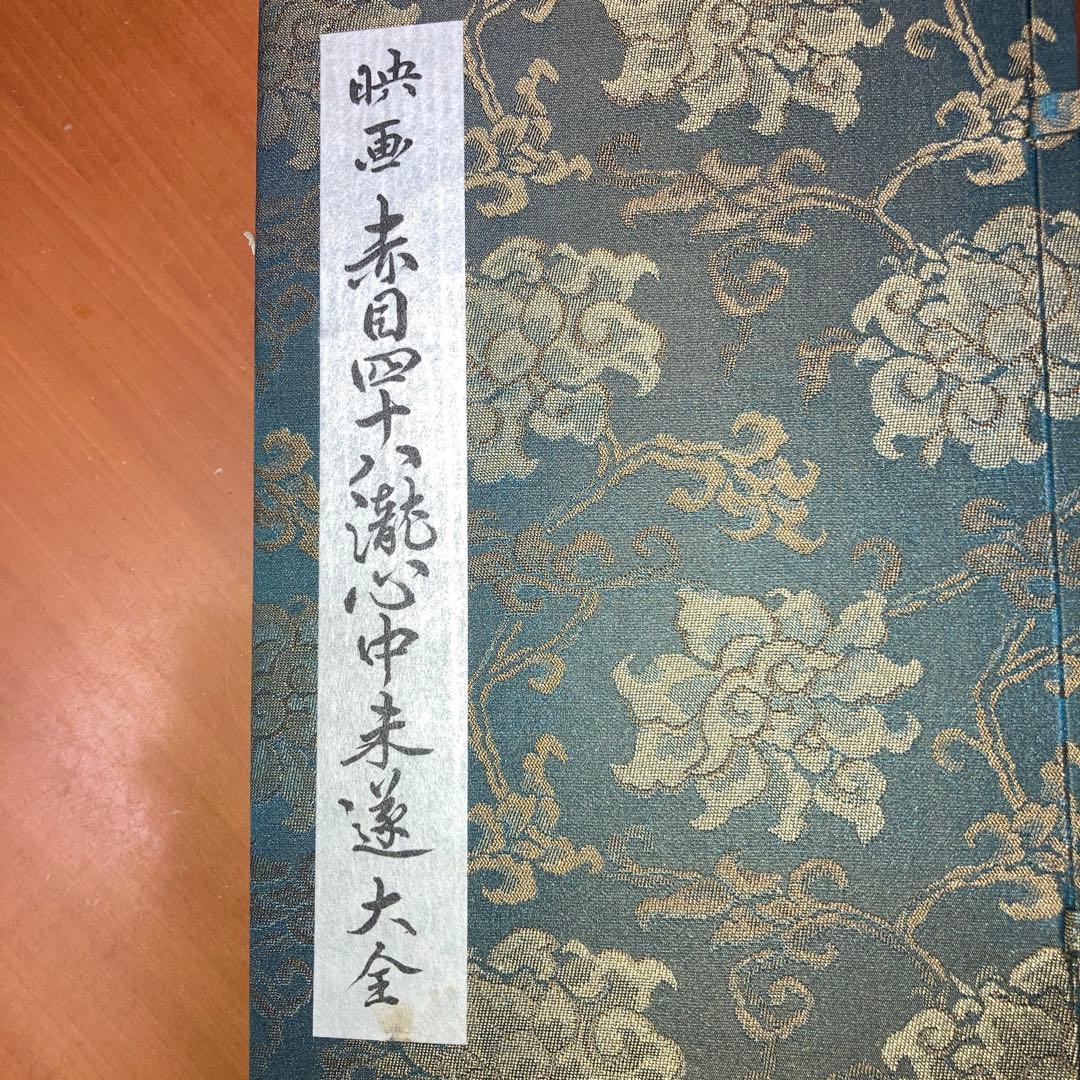 映画 赤目四十八瀧心中未遂 大全